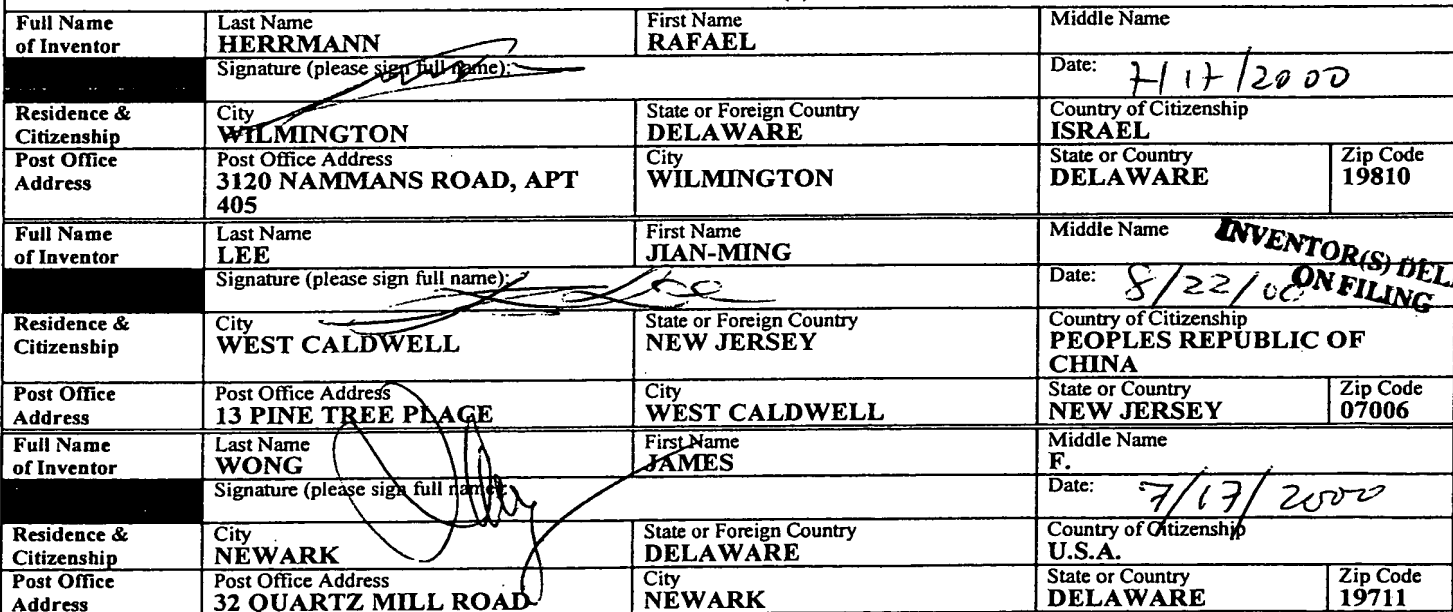 Full Name of Inventor
Last Name
HERRMANN
First Name
RAFAEL
Middle Name
Signature (please sign full name):
Date: 7/17/2000
Residence & Citizenship
City
WILMINGTON
State or Foreign Country
DELAWARE
Country of Citizenship
ISRAEL
Post Office Address
Post Office Address
3120 NAMMANS ROAD, APT
405
City
WILMINGTON
State or Country
DELAWARE
Zip Code
19810
Full Name of Inventor
Last Name
LEE
First Name
JIAN-MING
Middle Name
INVENTOR(S) DEL.
ON FILING
Signature (please sign full name):
Date: 8/22/00
Residence & Citizenship
City
WEST CALDWELL
State or Foreign Country
NEW JERSEY
Country of Citizenship
PEOPLES REPUBLIC OF
CHINA
Post Office Address
Post Office Address
13 PINE TREE PLACE
City
WEST CALDWELL
State or Country
NEW JERSEY
Zip Code
07006
Full Name of Inventor
Last Name
WONG
First Name
JAMES
Middle Name
F.
Signature (please sign full name):
Date: 7/17/2000
Residence & Citizenship
City
NEWARK
State or Foreign Country
DELAWARE
Country of Citizenship
U.S.A.
Post Office Address
Post Office Address
32 QUARTZ MILL ROAD
City
NEWARK
State or Country
DELAWARE
Zip Code
19711